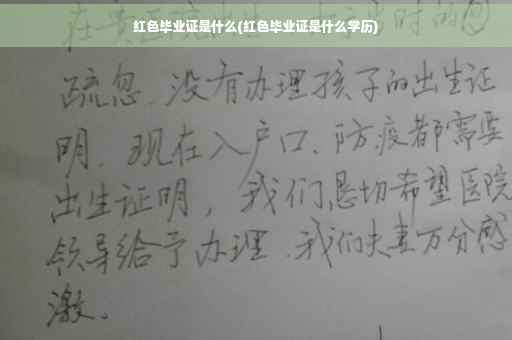 红色毕业证是什么(红色毕业证是什么学历)
疏忽、没有办理孩子的出生证
明、现在入户口、防疫都需要
出生证明，我们恳切希望医院
领导给予办理、我们夫妻万分感
激。